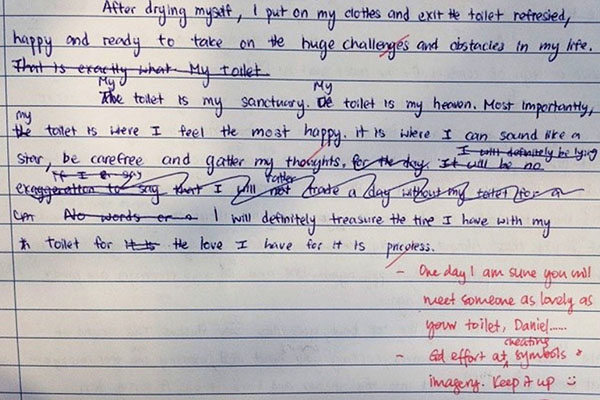 After drying myself, I put on my clothes and exit the toilet refreshed,
happy and ready to take on the huge challenges and obstacles in my life.
That is exactly what My toilet
My My
The toilet is my sanctuary. The toilet is my heaven. Most importantly,
my
the toilet is were I feel the most happy. it is where I can sound like a
I will definitely be lying
star, be carefree and gather my thoughts. for the day. It will be no
if I er say rather
exaggeration to say that I will not trade a day without my toilet for a
No words or a I will definitely treasure the time I have with my
toilet for it is the love I have for it is priceless.
- One day I am sure you will
meet someone as lovely as
your toilet, Daniel......
creating
- Gd effort at symbols &
imagery. Keep it up